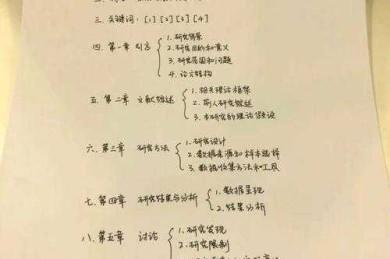 三. 关键词: [1] [2] [3] [4]
四. 第一章 引言
1. 研究背景
2. 研究目的和意义
3. 研究范围和问题
4. 论文结构
五. 第二章 文献综述
1. 相关理论框架
2. 前人研究综述
3. 本研究的理论假设
六. 第三章 研究方法
1. 研究设计
2. 数据来源和样本选择
3. 数据收集方法和工具
七. 第四章 研究结果与分析
1. 数据呈现
2. 结果分析
八. 第五章 讨论
1. 研究发现
2. 研究限制